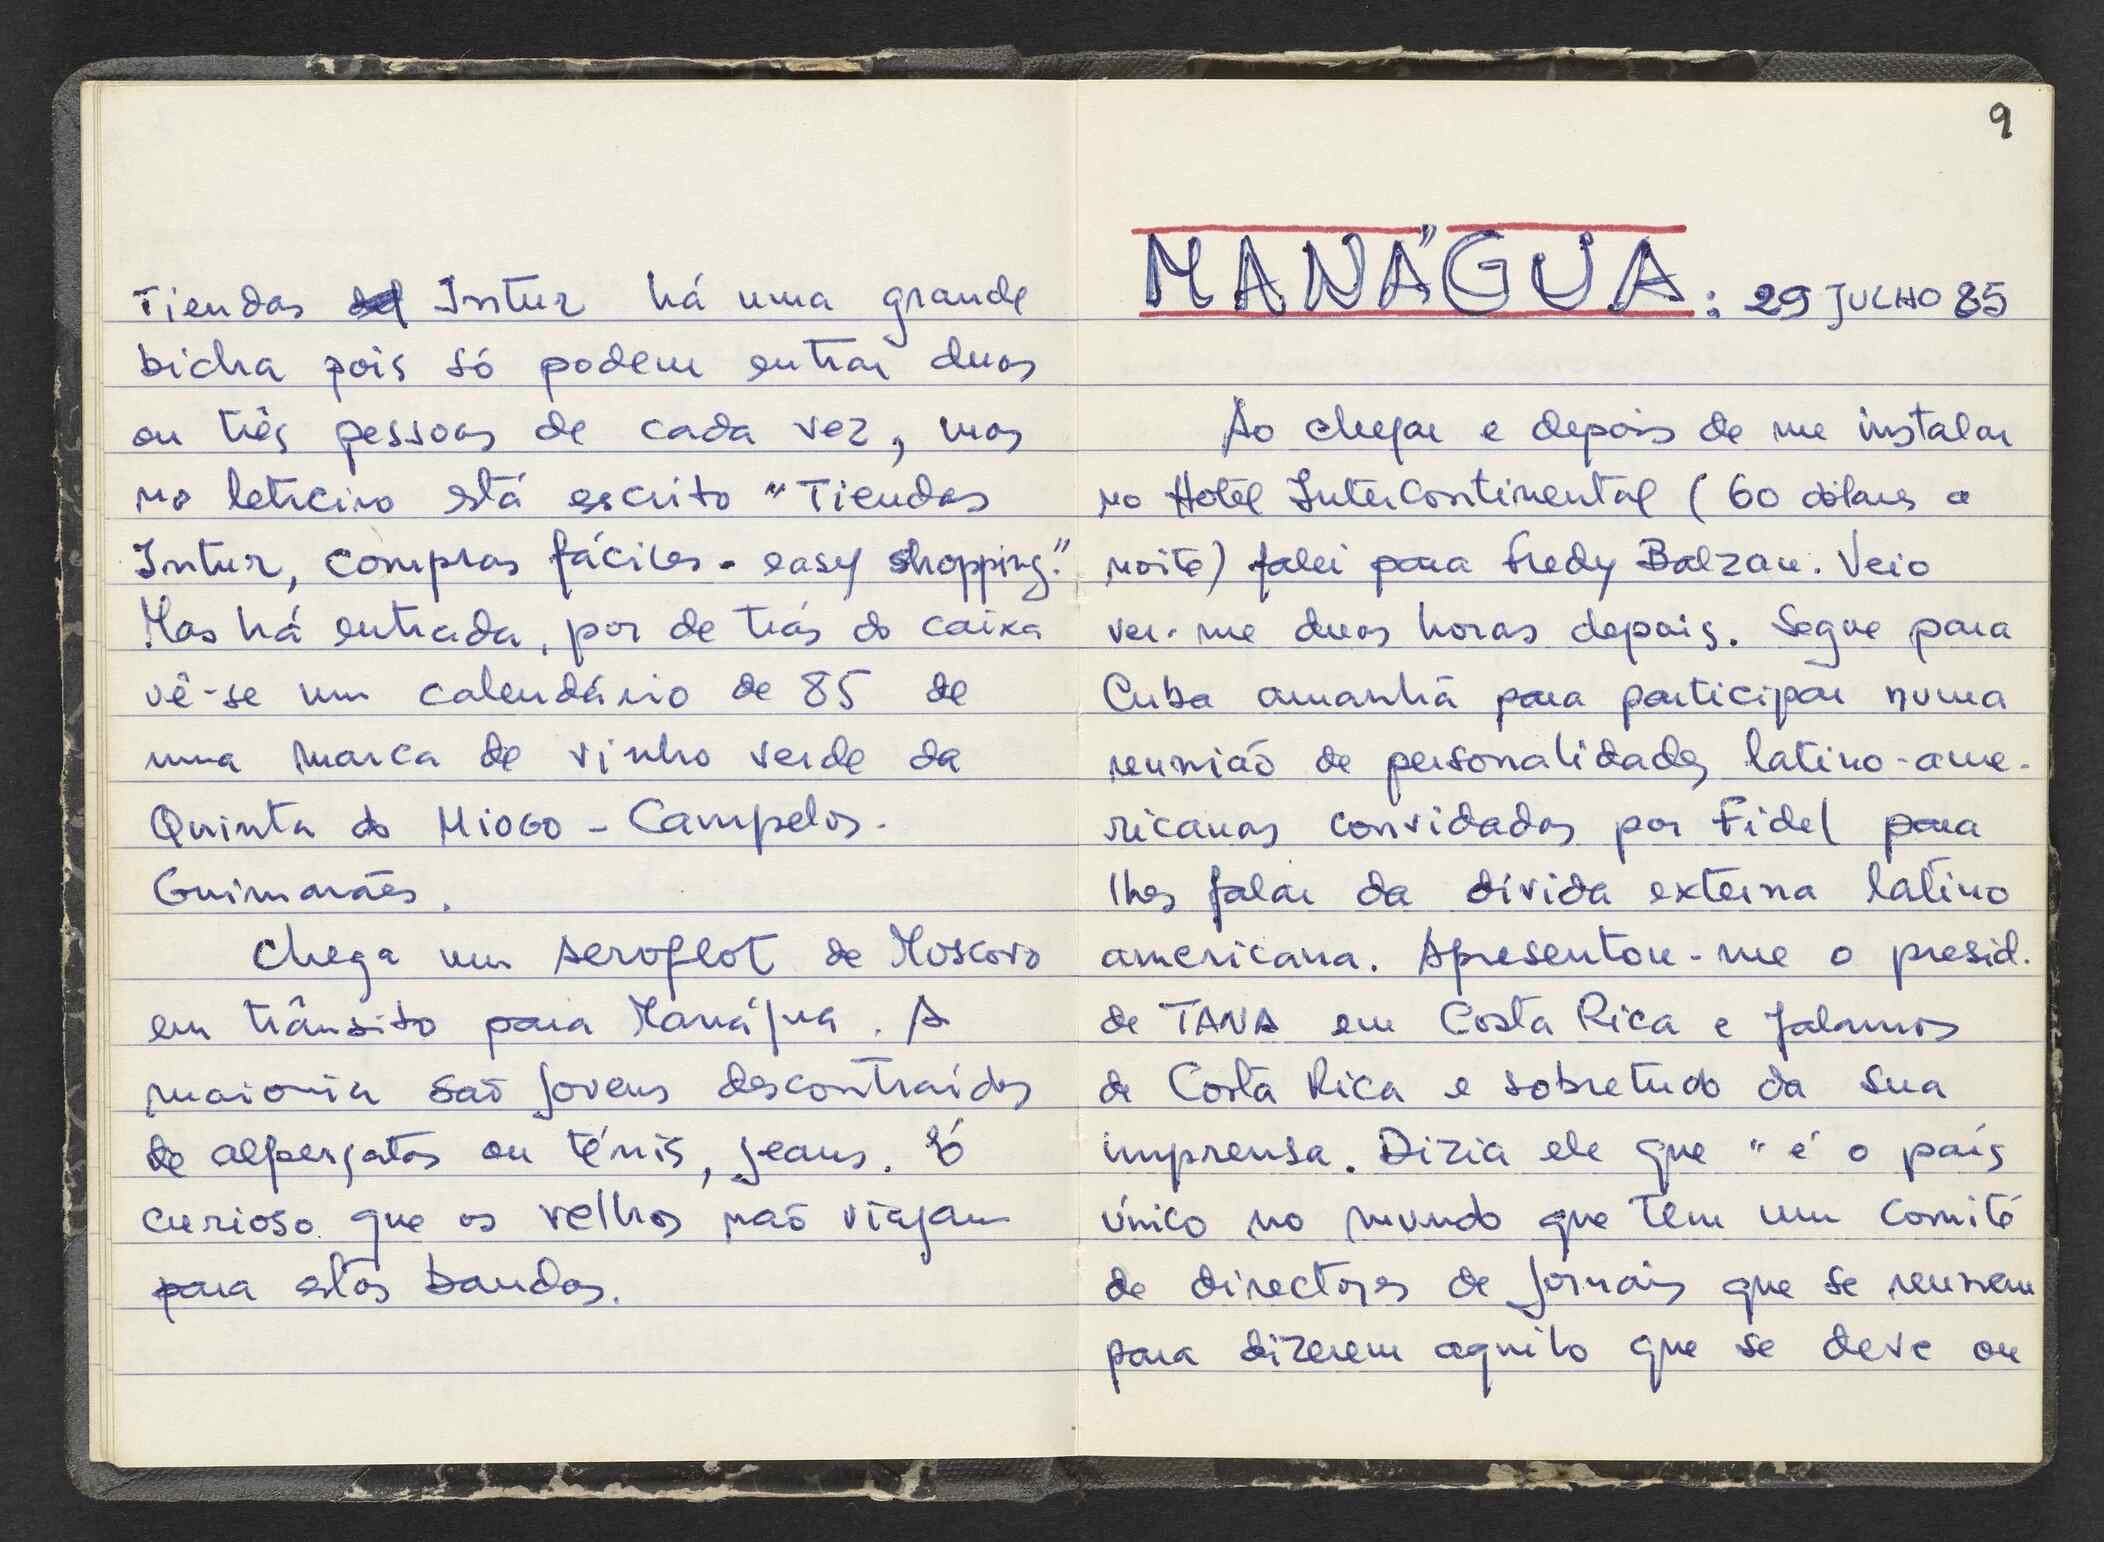 Tiendas Intur há uma grande
bicha pois só podem entrar duas
ou três pessoas de cada vez, mas
no letreiro está escrito "Tiendas
Intur, compras fáciles - easy shopping."
Mas há entrada, por de trás do caixa
vê-se um calendário de 85 de
uma marca de vinho verde da
Quinta do Miogo - Campelos.
Guimarães.
Chega um Aeroflot de Moscovo
em trânsito para Manágua. A
maioria são jovens descontraídos
de alpergatas ou ténis, jeans. É
curioso que os velhos não viajam
para estas bandas.
9
MANÁGUA: 29 JULHO 85
Ao chegar e depois de me instalar
no Hotel InterContinental (60 dólares a
noite) falei para Fredy Balzan. Veio
ver-me duas horas depois. Segue para
Cuba amanhã para participar numa
reunião de personalidades latino-ame-
ricanas convidadas por Fidel para
lhes falar da dívida externa latino
americana. Apresentou-me o presid.
de TANA em Costa Rica e falamos
de Costa Rica e sobretudo da sua
imprensa. Dizia ele que "é o país
único no mundo que tem um comité
de directores de jornais que se reunem
para dizerem aquilo que se deve ou